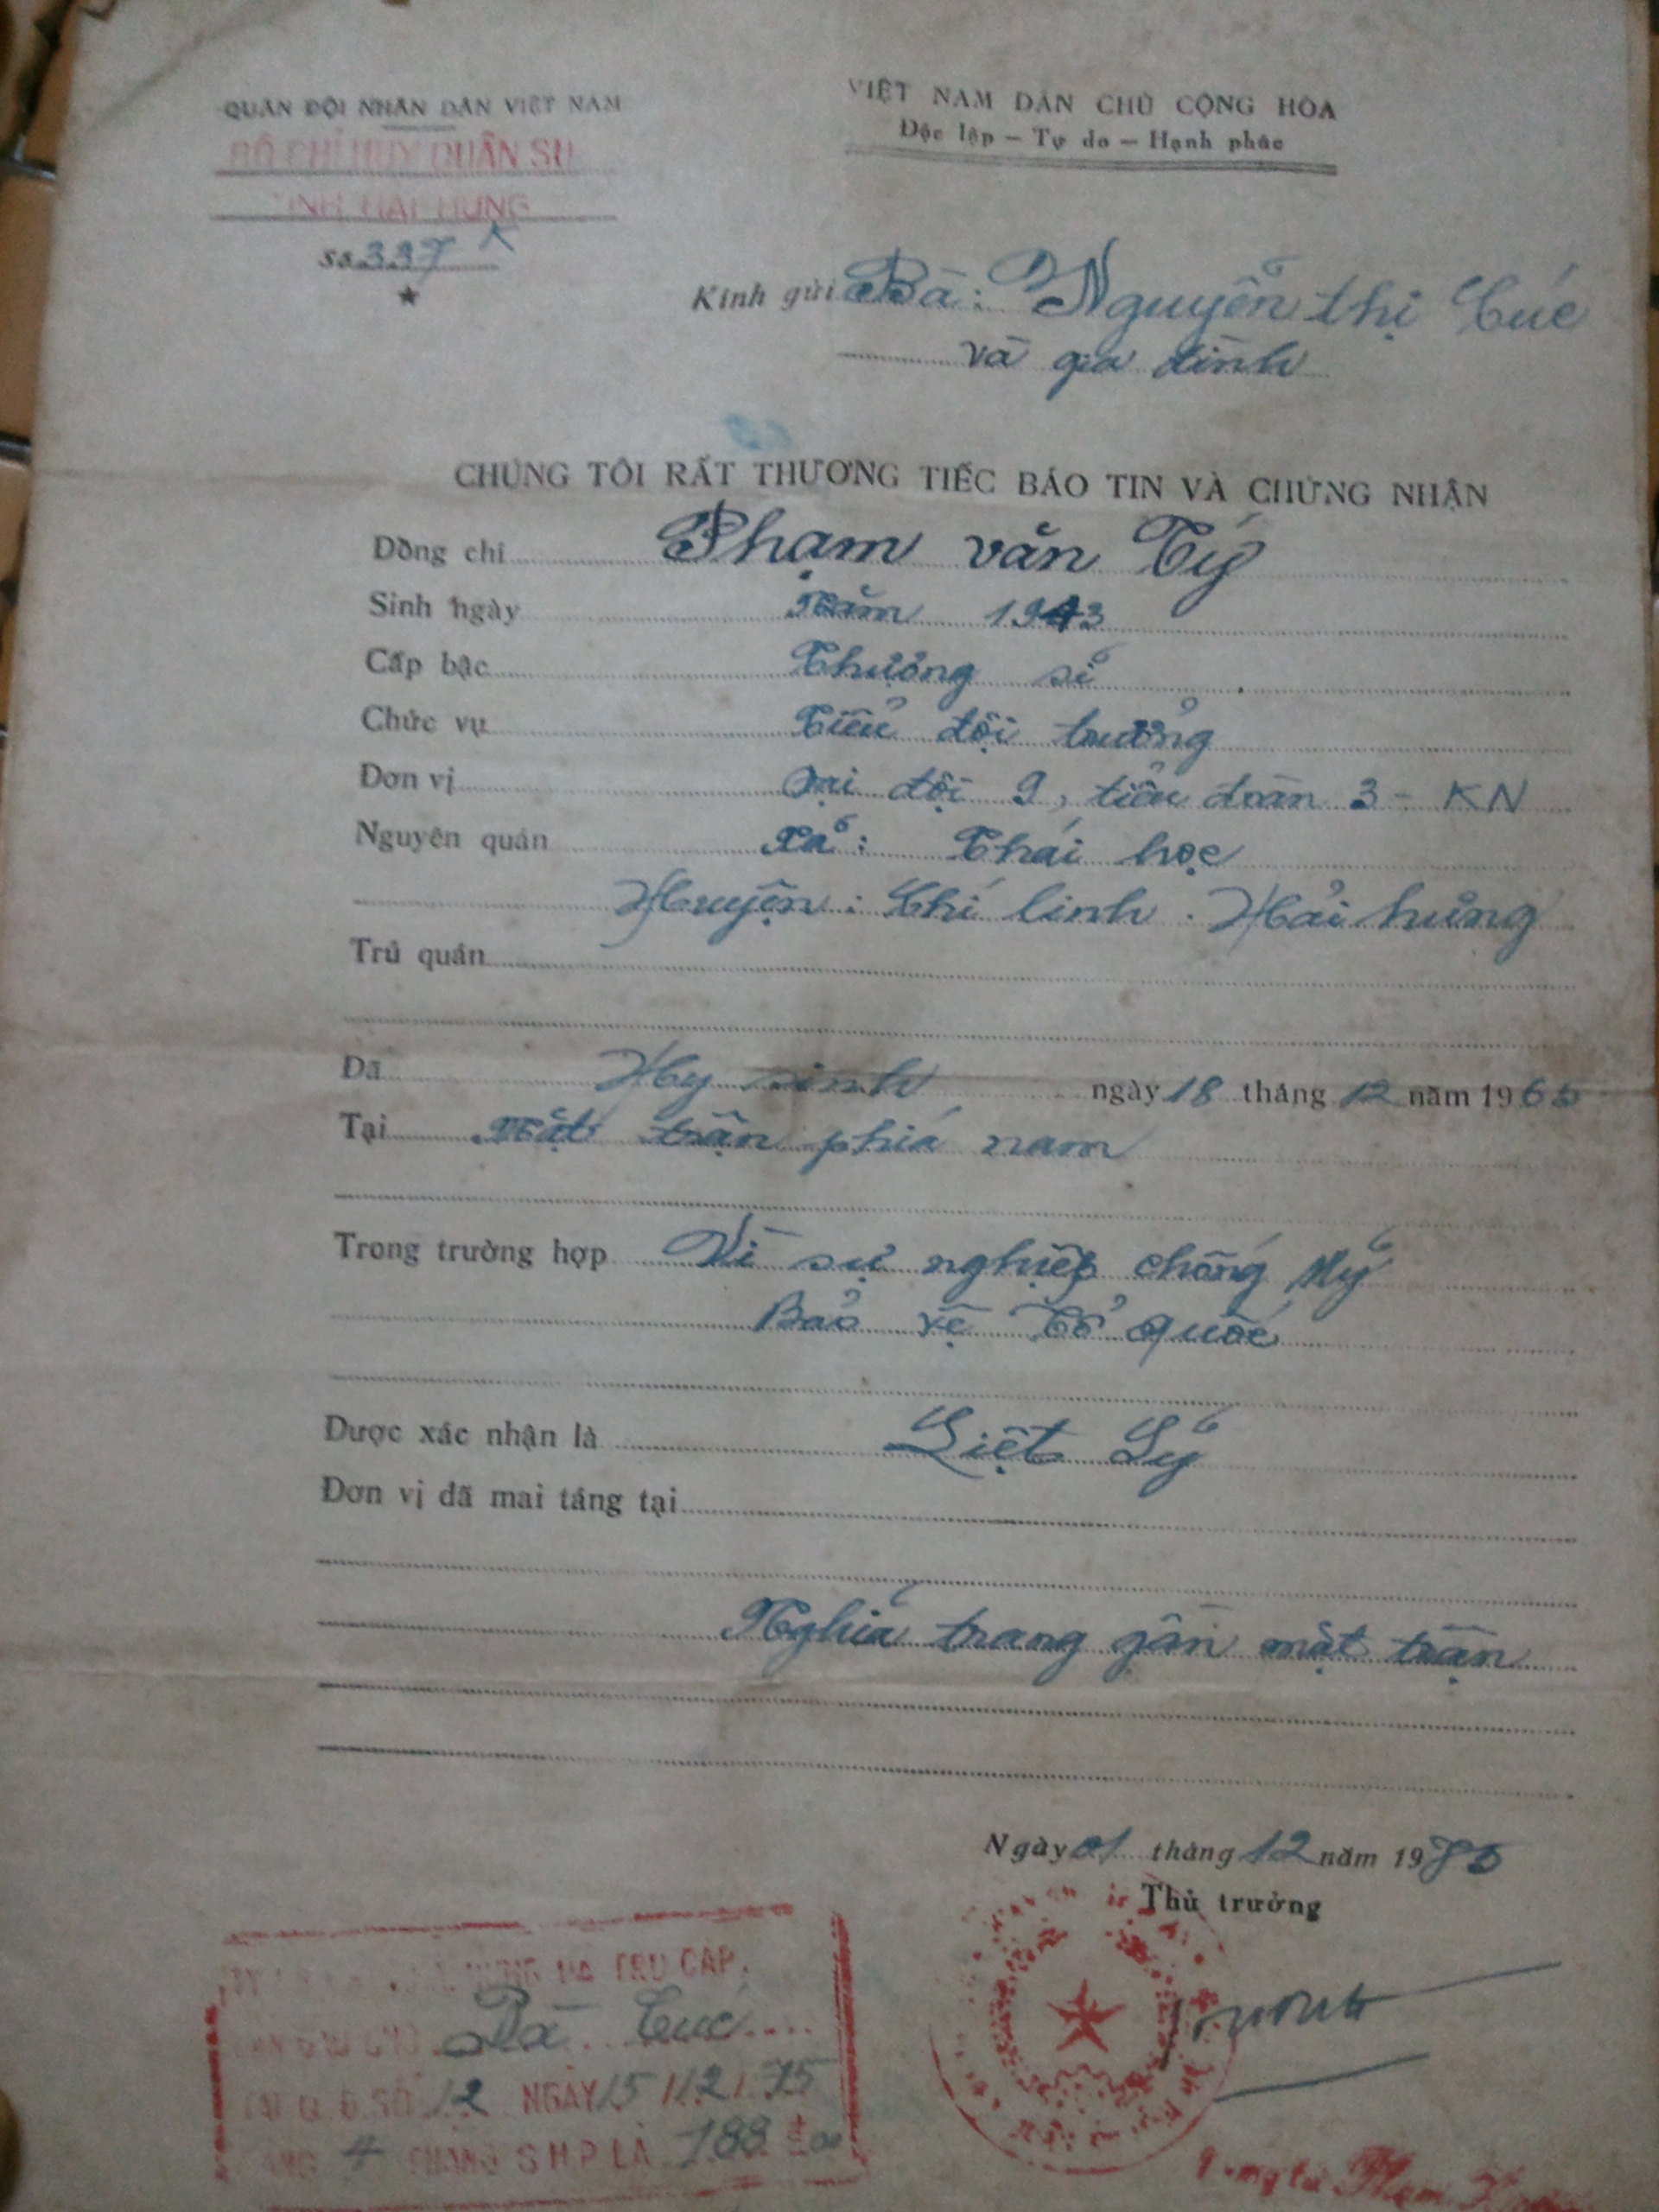 QUÂN ĐỘI NHÂN DÂN VIỆT NAM
BỘ CHỈ HUY QUÂN SỰ
TỈNH HẢI HƯNG
Số 337 K
VIỆT NAM DÂN CHỦ CỘNG HÒA
Độc lập — Tự do — Hạnh phúc
Kính gửi Bà: Nguyễn thị Cúc
và gia đình
CHÚNG TÔI RẤT THƯƠNG TIẾC BÁO TIN VÀ CHỨNG NHẬN
Đồng chí Phạm văn Tý
Sinh ngày Năm 1943
Cấp bậc Thượng sĩ
Chức vụ Tiểu đội trưởng
Đơn vị Đại đội 9, tiểu đoàn 3 - KN
Nguyên quán Xã: Thái học
Huyện: Chí linh. Hải hưng
Trú quán
Đã Hy sinh ngày 18 tháng 12 năm 1965
Tại Mặt trận phía nam
Trong trường hợp Vì sự nghiệp chống Mỹ
Bảo vệ Tổ quốc
Được xác nhận là Liệt Sỹ
Đơn vị đã mai táng tại
Nghĩa trang gần mặt trận
Ngày 01 tháng 12 năm 1975
Thủ trưởng
ĐÃ TRỢ CẤP
Bà Cúc
SỐ 12 NGÀY 15/12/75
4 THÁNG S H P LÀ 188